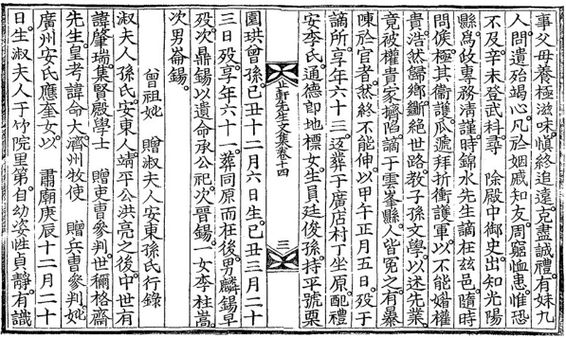 事父母養極滋味愼終追遠克盡誠禮有妹九
人問遺殆竭心凡於姻戚知友周窮恤患惟恐
不及辛未登武科尋 除殿中御史出知光陽
縣爲政專務淸謹時錦水先生謫在玆邑隨時
問候極其衞護瓜遞拜折衝護軍以不能媚權
貴浩然歸鄕斷絶世路敎子孫文學以述先業
竟被權貴家擠陷謫于雲峯縣人皆寃之有㬥
陳於官者然終不能伸以甲午正月五日歿于
謫所享年六十三返葬于廣店村丁坐原配禮
安李氏通德郎地標女生員廷俊孫持平號栗
軒先生文集卷十四 三
園珙曾孫己丑十二月六日生己丑三月二十
三日歿享年六十一葬同原而在後男麟錫早
歿次鼎錫以遺命承公祀次晋錫一女李柱嵩
次男崙錫
曾祖妣 贈淑夫人安東孫氏行錄
淑夫人孫氏安東人靖平公洪亮之後中世有
諱肇瑞集賢殿學士 贈吏曹參判世稱格齋
先生皇考諱命大濟州牧使 贈兵曹參判妣
廣州安氏應奎女以 肅廟庚辰十二月二十
日生淑夫人于竹院里第自幼姿性貞靜有識